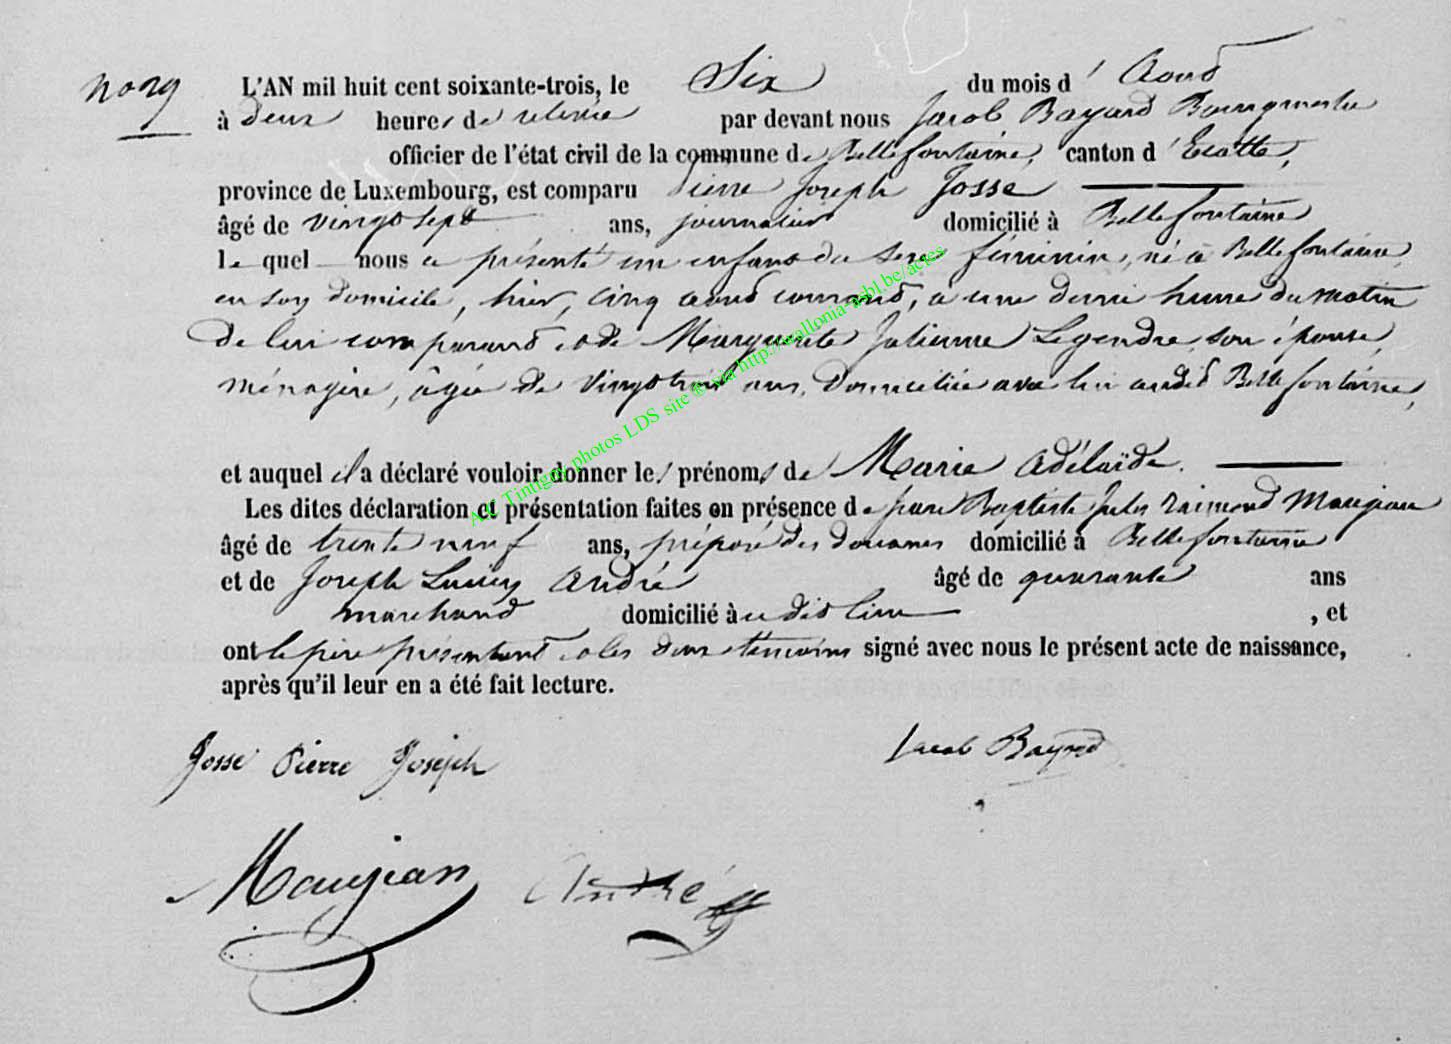 No 29
L'AN mil huit cent soixante-trois, le Six du mois d'Aout
à deux heures de relevée par devant nous Jacob Bayard Bourgmestre
officier de l'état civil de la commune de Bellefontaine, canton d'Etalle,
province de Luxembourg, est comparu Pierre Joseph Josse
âgé de vingt sept ans, journalier domicilié à Bellefontaine
lequel nous a présenté un enfant du sexe féminin, né à Bellefontaine,
en son domicile, hier, cinq aout courant, à une demi heure du matin
de lui comparant et de Marguerite Julienne Legendre, son épouse,
ménagère, âgée de vingt ans, domiciliée avec lui audit Bellefontaine,
et auquel il a déclaré vouloir donner les prénoms de Marie Adélaïde.
Les dites déclaration et présentation faites en présence de Jean Baptiste Jules Raimond Maujean
âgé de trente neuf ans, préposé des douanes domicilié à Bellefontaine
et de Joseph Lucien André âgé de quarante ans
marchand domicilié à u dit lieu , et
ont le père présentant et les deux témoins signé avec nous le présent acte de naissance,
après qu'il leur en a été fait lecture.
Josse Pierre Joseph
Jacob Bayard
Maujean
André
A.C Tintigny photos LDS site ® via http://wallonia-asbl.be/actes